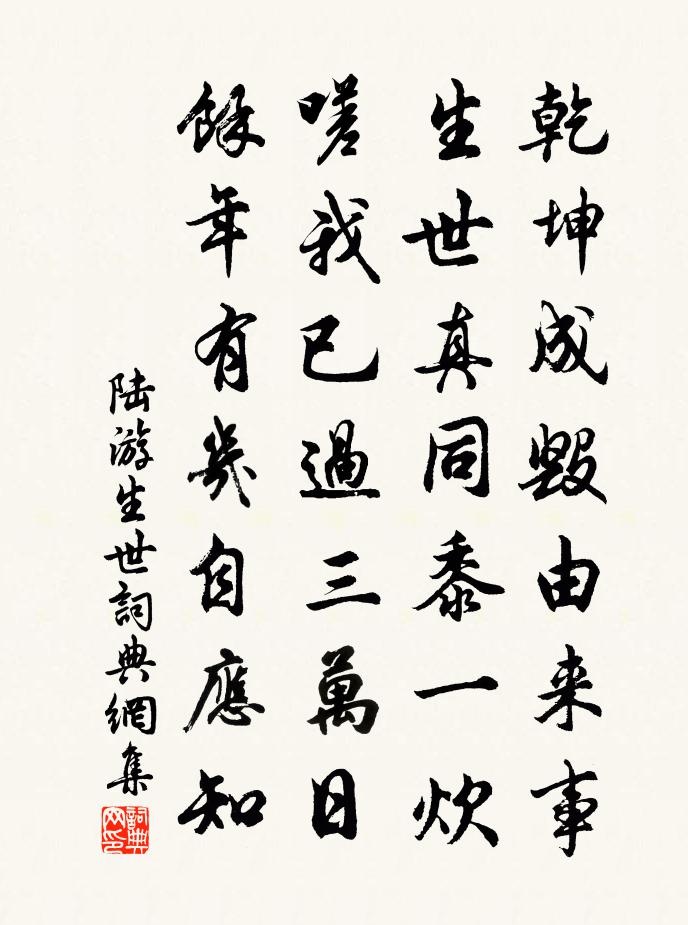 乾坤成毀由来事
生世真同黍一炊
嗟我已過三萬日
餘年有幾自應知
陆游生世詞典網集
詞典网印